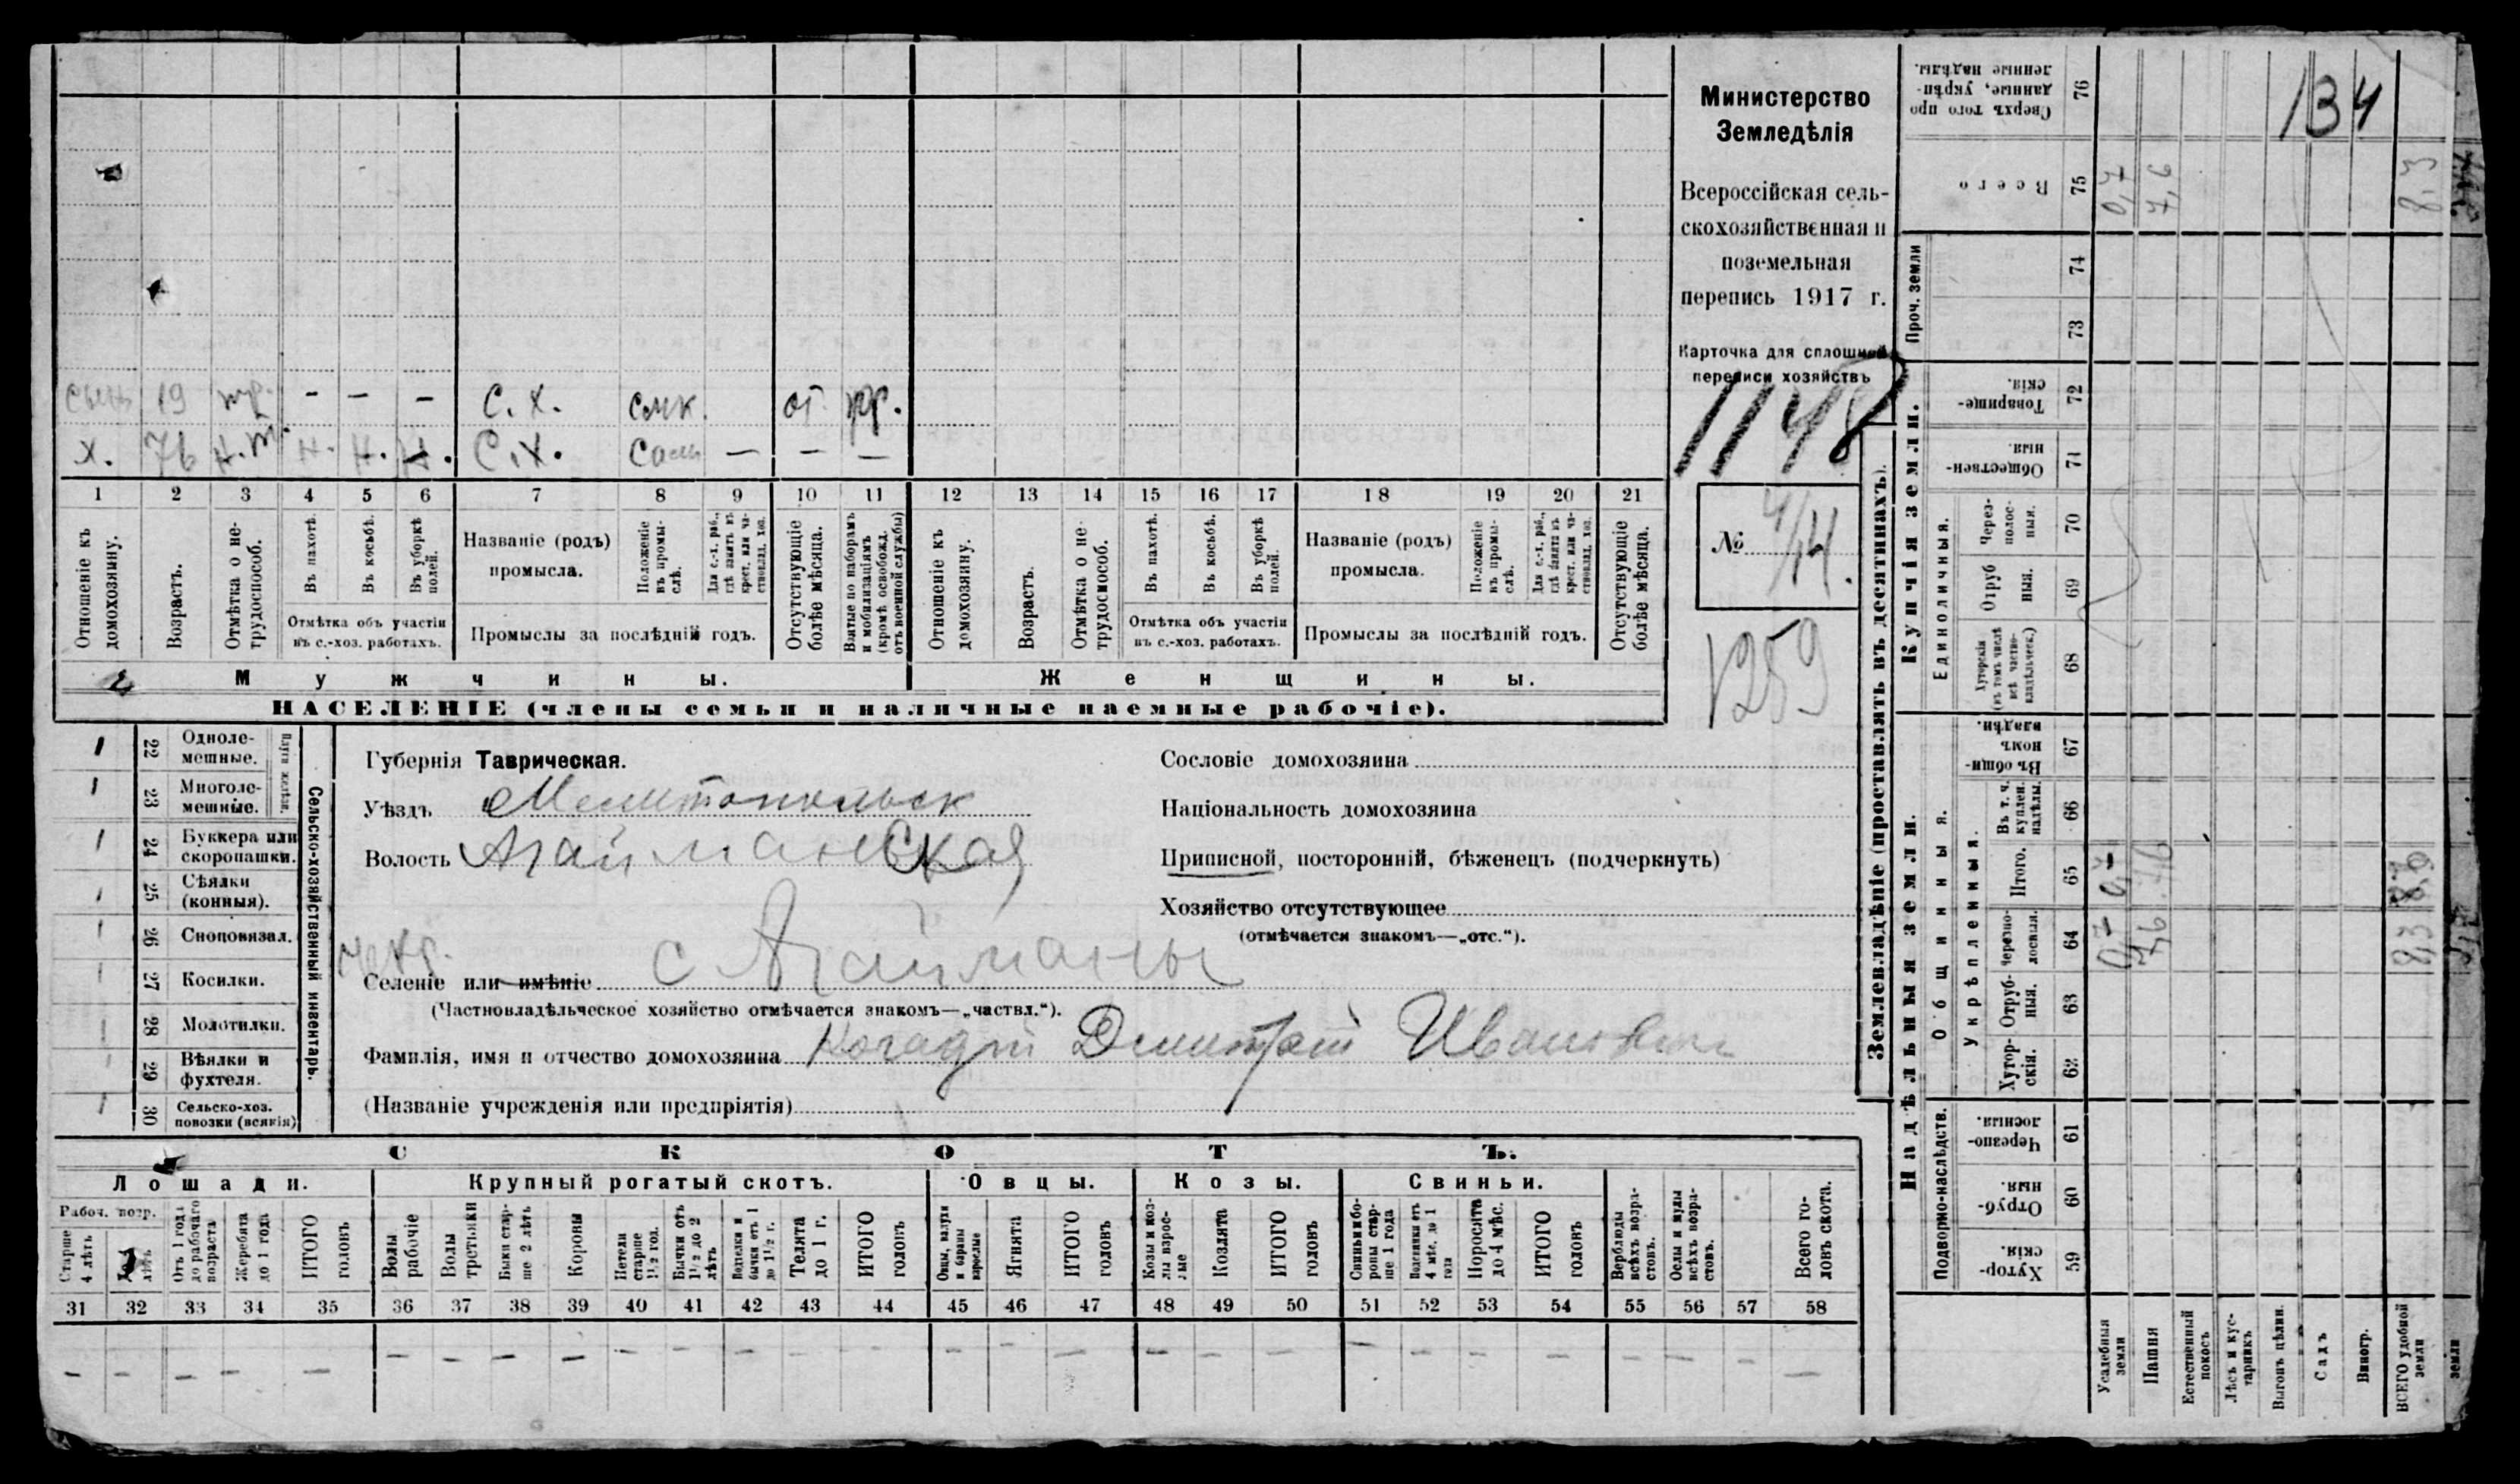 Министерство
Земледѣлія
Всероссійская сель-
скохозяйственная и
поземельная
перепись 1917 г.
Карточка для сплошной
переписи хозяйствъ
1148
№ 4/14.
1259
134
сынъ 19 – – – С. Х. от.
х. 76 н.т. н. н. н. С. Х. – – –
1 2 3 4 5 6 7 8 9 10 11 12 13 14 15 16 17 18 19 20 21
Отношеніе къ домохозяину.
Возрастъ.
Отмѣтка о не-трудоспособ.
Въ пахотѣ.
Въ косьбѣ.
Въ уборкѣ полей.
Отмѣтка объ участіи въ с.-хоз. работахъ.
Названіе (родъ) промысла.
Положеніе въ промы-слѣ.
Для с.-х. раб., гдѣ занятъ въ крест. или ча-ствовлад. хоз.
Промыслы за послѣдній годъ.
Отсутствующіе болѣе мѣсяца.
Взятые по наборамъ и мобилизаціямъ (кромѣ освобожд. отъ военной службы)
Отношеніе къ домохозяину.
Возрастъ.
Отмѣтка о не-трудоспособ.
Въ пахотѣ.
Въ косьбѣ.
Въ уборкѣ полей.
Отмѣтка объ участіи въ с.-хоз. работахъ.
Названіе (родъ) промысла.
Положеніе въ промы-слѣ.
Для с.-х. раб., гдѣ занята въ крест. или ча-ствовлад. хоз.
Промыслы за послѣдній годъ.
Отсутствующіе болѣе мѣсяца.
2 Мужчины. Женщины.
НАСЕЛЕНІЕ (члены семьи и наличные наемные рабочіе).
Сельско-хозяйственный инвентарь.
Плуги желѣзн.
22 Одноле-мешные.
23 Многоле-мешные.
24 Буккера или скоропашки.
25 Сѣялки (конныя).
26 Сноповязал.
27 Косилки.
28 Молотилки.
29 Вѣялки и фухтеля.
30 Сельско-хоз. повозки (всякія)
Губернія Таврическая.
Уѣздъ Мелитопольск
Волость Агайманская
Селеніе или имѣніе с Агайманы
(Частновладѣльческое хозяйство отмѣчается знакомъ—„частвл.“).
Фамилія, имя и отчество домохозяина Дмитрій Иванович
(Названіе учрежденія или предпріятія)
Сословіе домохозяина
Національность домохозяина
Приписной, посторонній, бѣженецъ (подчеркнуть)
Хозяйство отсутствующее
(отмѣчается знакомъ—„отс.“).
СКОТЪ.
Лошади. Крупный рогатый скотъ. Овцы. Козы. Свиньи.
Рабоч. возр.
Старше 4 лѣтъ
лѣтъ
Отъ 1 года до рабочаго возраста
Жеребята до 1 года
ИТОГО головъ
Волы рабочіе
Волы третьяки
Быки стар-ше 2 лѣтъ
Коровы
Нетели старше 1½ год.
Бычки отъ 1½ до 2 лѣтъ
Подтелки и бычки отъ 1 до 1½ г.
Телята до 1 г.
ИТОГО головъ
Овцы, валухи и бараны взрослые
Ягнята
ИТОГО головъ
Козы и коз-лы взрос-лые
Козлята
ИТОГО головъ
Свиньи и бо-ровы стар-ше 1 года
Подсвинки отъ 4 мѣс. до 1 года
Поросята до 4 мѣс.
ИТОГО головъ
Верблюды всѣхъ возра-стовъ.
Ослы и мулы всѣхъ возра-стовъ.
Всего го-ловъ скота.
31 32 33 34 35 36 37 38 39 40 41 42 43 44 45 46 47 48 49 50 51 52 53 54 55 56 57 58
Землевладѣніе (проставлять въ десятинахъ).
Надѣльныя земли.
Купчія земли.
Проч. земли
Подворно-наслѣдств.
Общинныя.
Укрѣпленныя.
Единоличныя.
Хутор-скія. 59
Отруб-ныя. 60
Черезпо-лосныя. 61
Хутор-скія. 62
Отруб-ныя. 63
Черезпо-лосныя. 64
Итого. 65
Въ т. ч. куплен. надѣлы. 66
Въ общи-номъ владѣн. 67
Хуторскія (въ томъ числѣ всѣ частно-владѣльческ.) 68
Отруб ныя. 69
Через-полос-ныя. 70
Обществен-ныя. 71
Товарище-скія. 72
73
74
Всего 75
Сверхъ того про данные, укрѣп-ленные надѣлы. 76
Усадебныя земли 0,7 0,7 0,7
Пашня 7,6 7,6 7,6
Естественный покосъ
Лѣсъ и кус-тарникъ
Выгонъ цѣлин.
Садъ
Виногр.
ВСЕГО удобной земли 8,3 8,3 8,3
земли